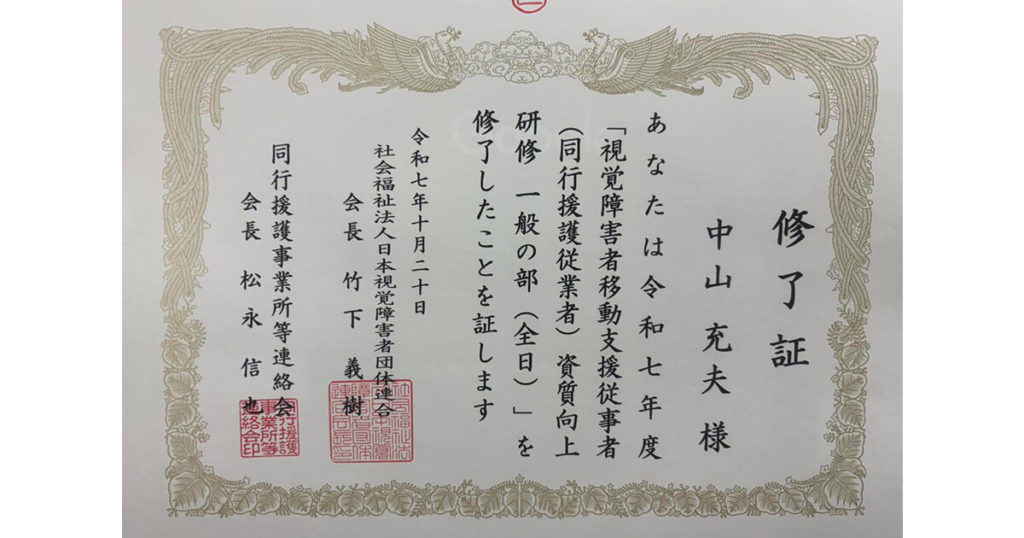 修了証
中山 充夫 様
あなたは令和七年度
「視覚障害者移動支援従事者
(同行援護従業者)資質向上
研修 一般の部(全日)」を
修了したことを証します
令和七年十月二十日
社会福祉法人日本視覚障害者団体連合
会長 竹下 義樹
同行援護事業所等連絡会
会長 松永 信也
同行援護
事業所等
連絡会印